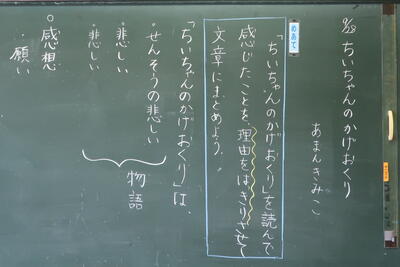 9/28 ちいちゃんのかげおくり
あまんきみこ
めあて
「ちいちゃんのかげおくり」を読んで
感じたことを、理由をはっきりさせて
文章にまとめよう。
「ちいちゃんのかげおくり」は、
せんそうの悲しい
悲しい
悲しい
物語
感想
願い